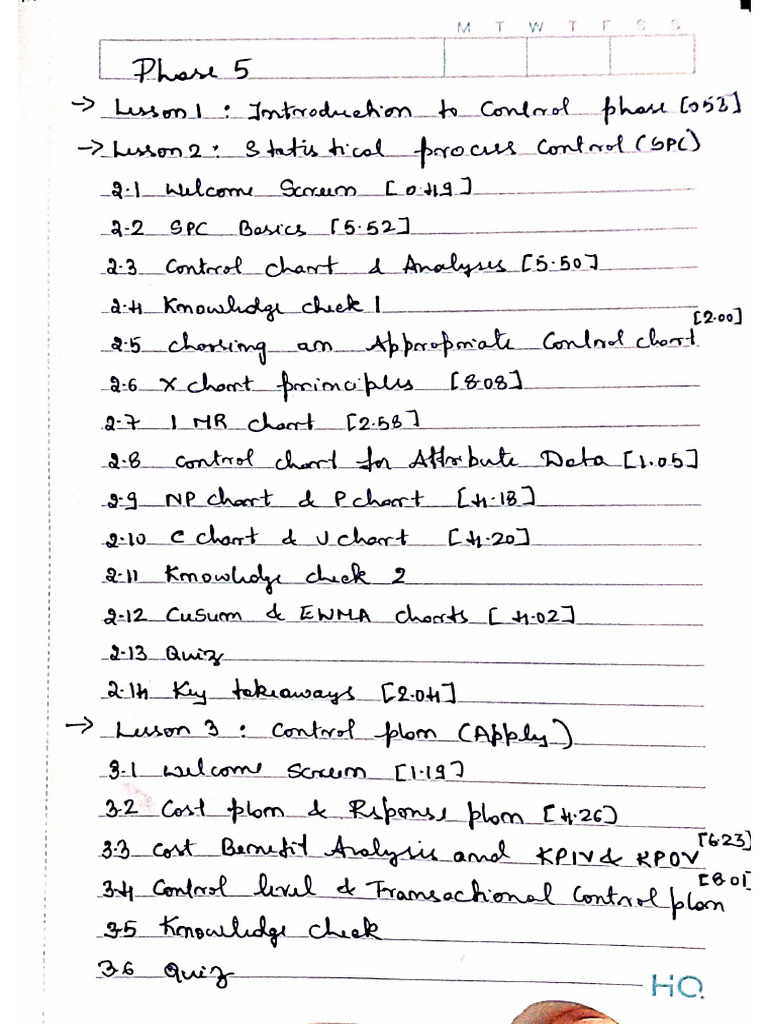 M T W T F S S
Phase 5
→ Lesson 1 : Introduction to Control phase [0.53]
→ Lesson 2 : Statistical process Control (SPC)
2.1 Welcome Screen [0.49]
2.2 SPC Basics [5.52]
2.3 Control chart & Analyses [5.50]
2.4 Knowledge check 1
2.5 choosing an Appropriate Control chart [2.00]
2.6 X chart principles [8.08]
2.7 I MR chart [2.58]
2.8 control chart for Attribute Data [1.05]
2.9 NP chart & P chart [4.18]
2.10 C chart & U chart [4.20]
2.11 Knowledge check 2
2.12 CuSum & EWMA charts [4.02]
2.13 Quiz
2.14 Key takeaways [2.04]
→ Lesson 3 : Control plan (Apply)
3.1 Welcome Screen [1.19]
3.2 Cost plan & Rsponse plan [4.26]
3.3 Cost Benefit Analysis and KPIV & KPOV [6.23]
3.4 Control level & Transactional Control plan [8.01]
3.5 Knowledge check
3.6 Quiz
HQ